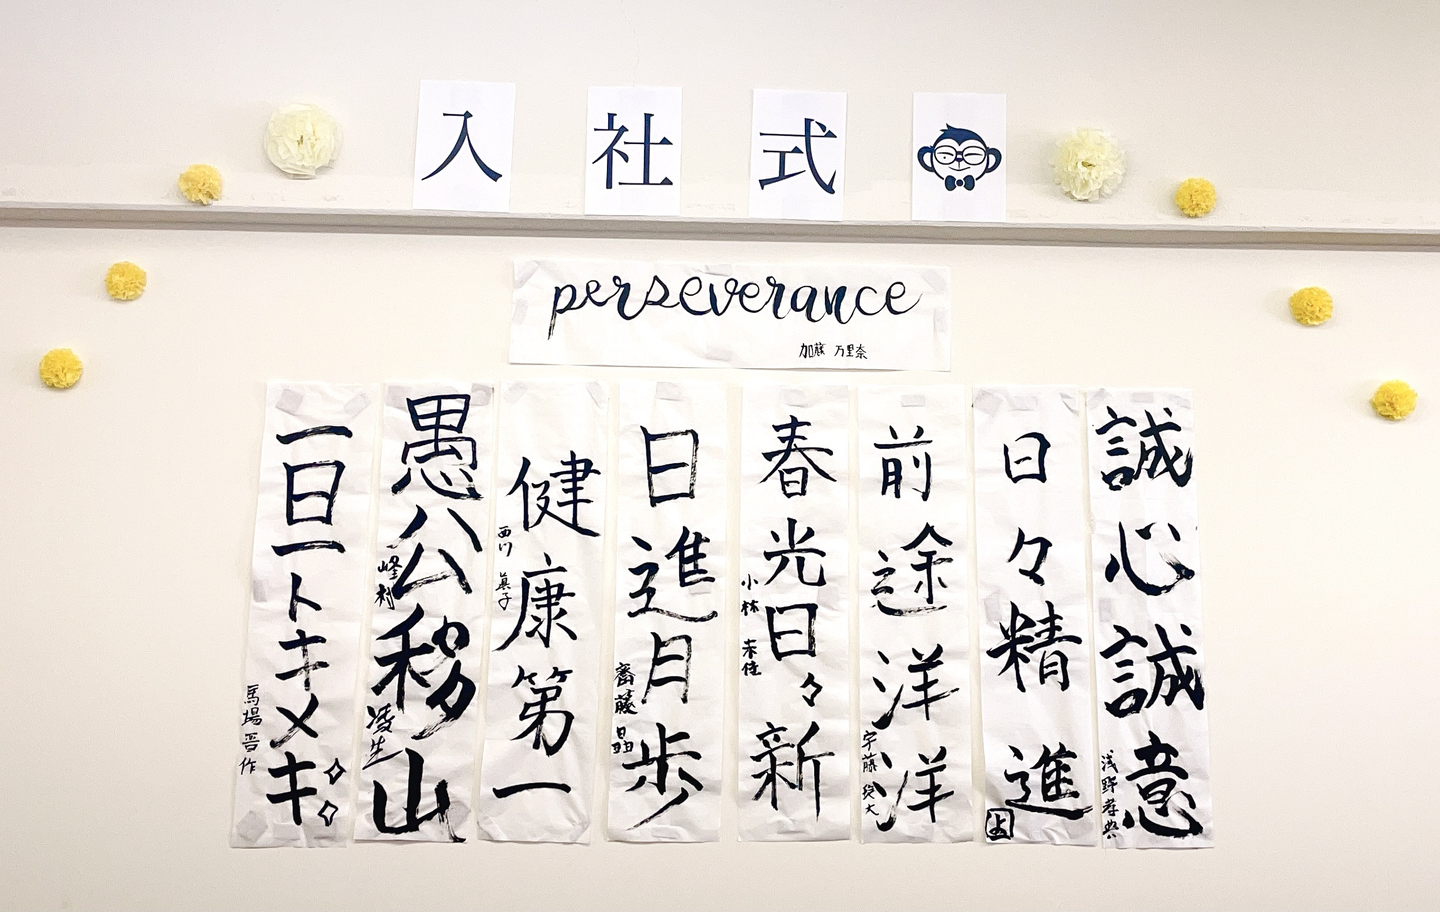 入社式
perseverance
加藤 万里奈
誠心誠意
浅野孝典
日々精進
上
前途洋洋
春光日々新
小林 未佳
日進月歩
齋藤 晶
健康第一
西川 真子
愚公移山
峰村 凌生
一日一トキメキ
馬場 晋作